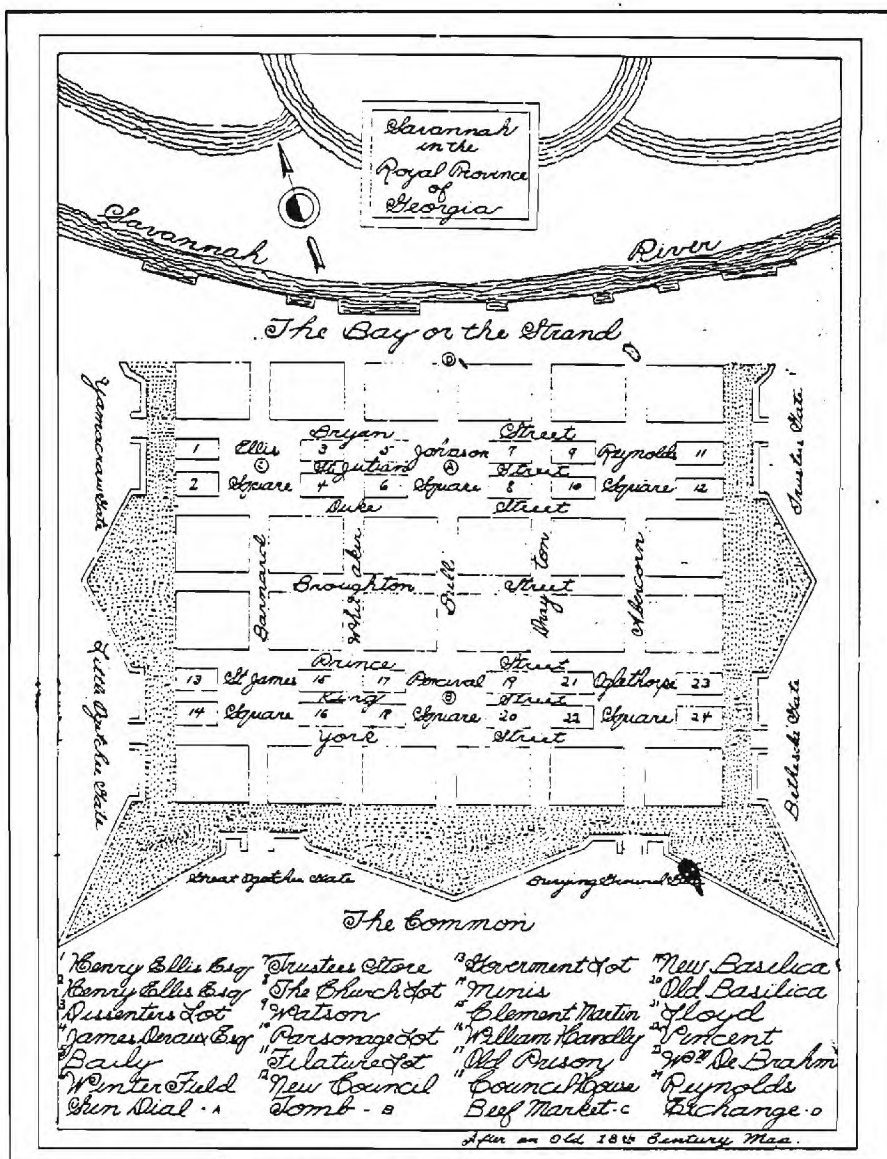 Savannah
in the
Royal Province
of
Georgia
Savannah River
The Bay or the Strand
D
Yamacraw Gate
Trustees Gate
Bryan Street
1 Ellis 3 5 Johnson 7 9 Reynolds 11
C St Julian A Street
2 Square 4 6 Square 8 10 Square 12
Duke Street
Barnard
Whitaker
Bull
Drayton
Abercorn
Broughton Street
Prince Street
13 St James 15 17 Percival 19 21 Oglethorpe 23
King B Street
14 Square 16 18 Square 20 22 Square 24
York Street
Little Ogechee Gate
Bethesda Gate
Great Ogechee Gate
Burying Ground
The Common
1 Henry Ellis Esq
2 Henry Ellis Esq
3 Dissenters Lot
4 James Deraux Esq
5 Baily
Winter Field
Sun Dial - A
7 Trustees Store
8 The Church Lot
9 Watson
10 Parsonage Lot
11 Filature Lot
12 New Council
Tomb - B
13 Goverment Lot
14 Minis
15 Clement Martin
16 William Handly
17 Old Prison
18 Council House
Beef Market - C
19 New Basilica
20 Old Basilica
21 Lloyd
22 Vincent
23 Wm De Brahm
24 Reynolds
Exchange - D
After an Old 18th Century Maa.